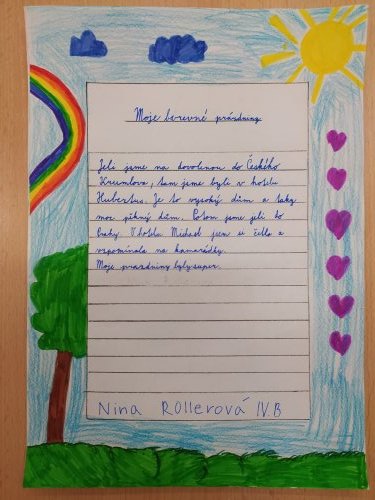 Moje barevné prázdniny
Jeli jsme na dovolenou do Českého
Krumlova, tam jsme byli v hotelu
Hubertus. Je to vysoký dům a taky
moc pěkný dům. Potom jsme jeli do
Prahy. V hotelu Michael jsem si četla a
vzpomínala na kamarádky.
Moje prazdniny byly super.
Nina Rollerová IV.B